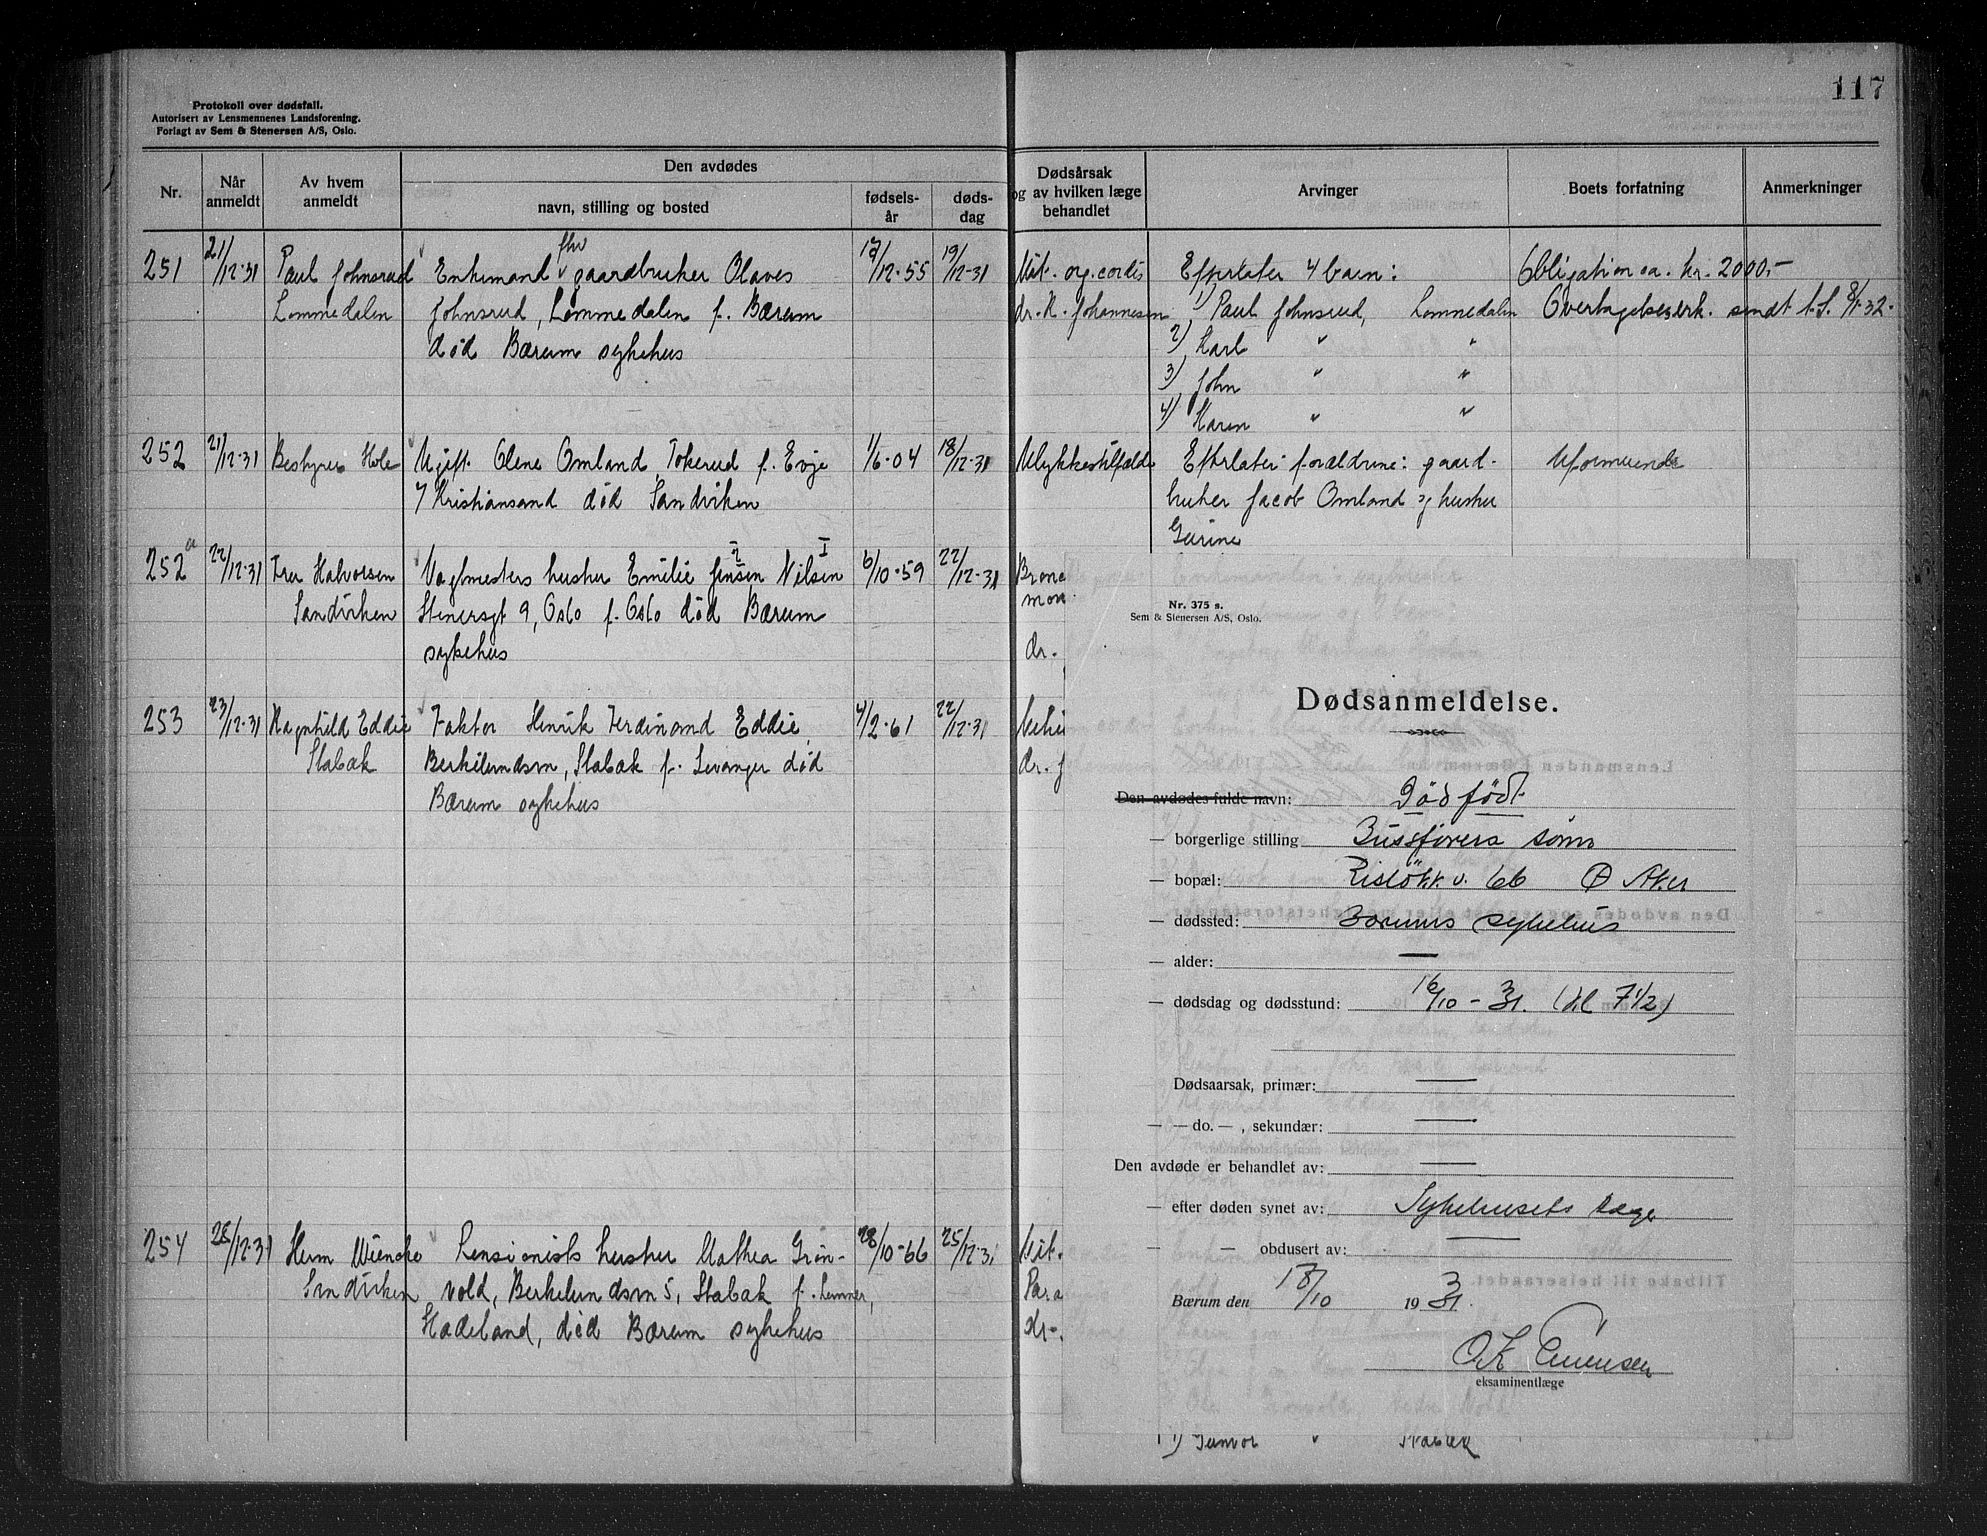 117
Protokoll over dødsfall.
Autorisert av Lensmennenes Landsforening.
Forlagt av Sem & Stenersen A/S, Oslo.
Nr.
Når anmeldt
Av hvem anmeldt
Den avdødes
navn, stilling og bosted
fødsels-år
døds-dag
Dødsårsak
og av hvilken læge
behandlet
Arvinger
Boets forfatning
Anmerkninger
251
21/12-31
Paul Johnsrud
Lommedalen
fhv
Enkemand v gaardbruker Olaves
Johnsrud, Lommedalen f. Bærum
død Bærum sykehus
17/12-55
19/12-31
Vit. org. cordis
dr. K. Johannesen
Efterlater 4 barn:
1) Paul Johnsrud, Lommedalen
2) Karl " "
3) John " "
4) Karen " "
Obligation ca. kr. 2000,-
Overtagelseserk. sendt t.S. 8/1-32.
252
21/12-31
Bestyrer Hole
Ugift Olene Omland, Tokerud f. Evje
/ Kristiansand død Sandviken
1/6-04
18/12-31
Ulykkestilfælde
Efterlater forældrene: gaard-
bruker Jacob Omland og hustru
Gurine
Uformuende
252 a
22/12-31
Fru Halvorsen
Sandviken
Vagtmesters hustru Emilie Jensen Nilsen
Stenersgt 9, Oslo f. Oslo død Bærum
sykehus
6/10-59
22/12-31
dr.
253
23/12-31
Ragnhild Eddie
Stabæk
Faktor Henrik Ferdinand Eddie,
Berkelundsvn, Stabæk f. Levanger død
Bærum sykehus
4/2-61
22/12-31
dr. J
254
28/12-31
Herm Wiencke
Sandviken
Pensionists hustru Mathea Grøn-
vold, Berkelundsvn 5, Stabæk f. Lunner,
Hadeland, død Bærum sykehus
28/10-66
25/12-31
Vit.
Para
dr.
1) Gunvor " Stabæk
Nr. 375 s.
Sem & Stenersen A/S, Oslo.
Dødsanmeldelse.
Den avdødes fulde navn: Dødfødt
— borgerlige stilling Bussførers sønn
— bopæl: Risløkk v. 66 Ø Aker
— dødssted: Bærums sykehus
— alder: —
— dødsdag og dødsstund: 16/10 - 31. (kl 7 1/2)
Dødsaarsak, primær: —
— — do. — , sekundær: —
Den avdøde er behandlet av: —
— efter døden synet av: Sykehusets læge
— — obdusert av: —
Bærum den 18/10 1931.
eksaminentlæge